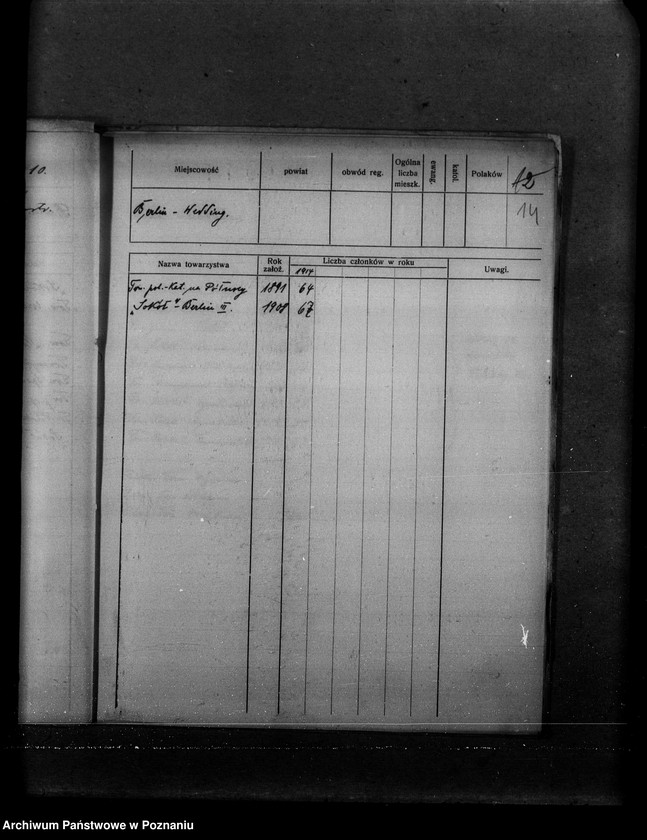 10.
Miejscowość powiat obwód reg. Ogólna liczba mieszk. ewang. katol. Polaków 12
Berlin - Wedding. 14
Nazwa towarzystwa Rok założ. Liczba członków w roku Uwagi.
1914
Tow. pol.-kat. na Północy 1891 64
"Sokół" - Berlin III. 1908 67
Archiwum Państwowe w Poznaniu